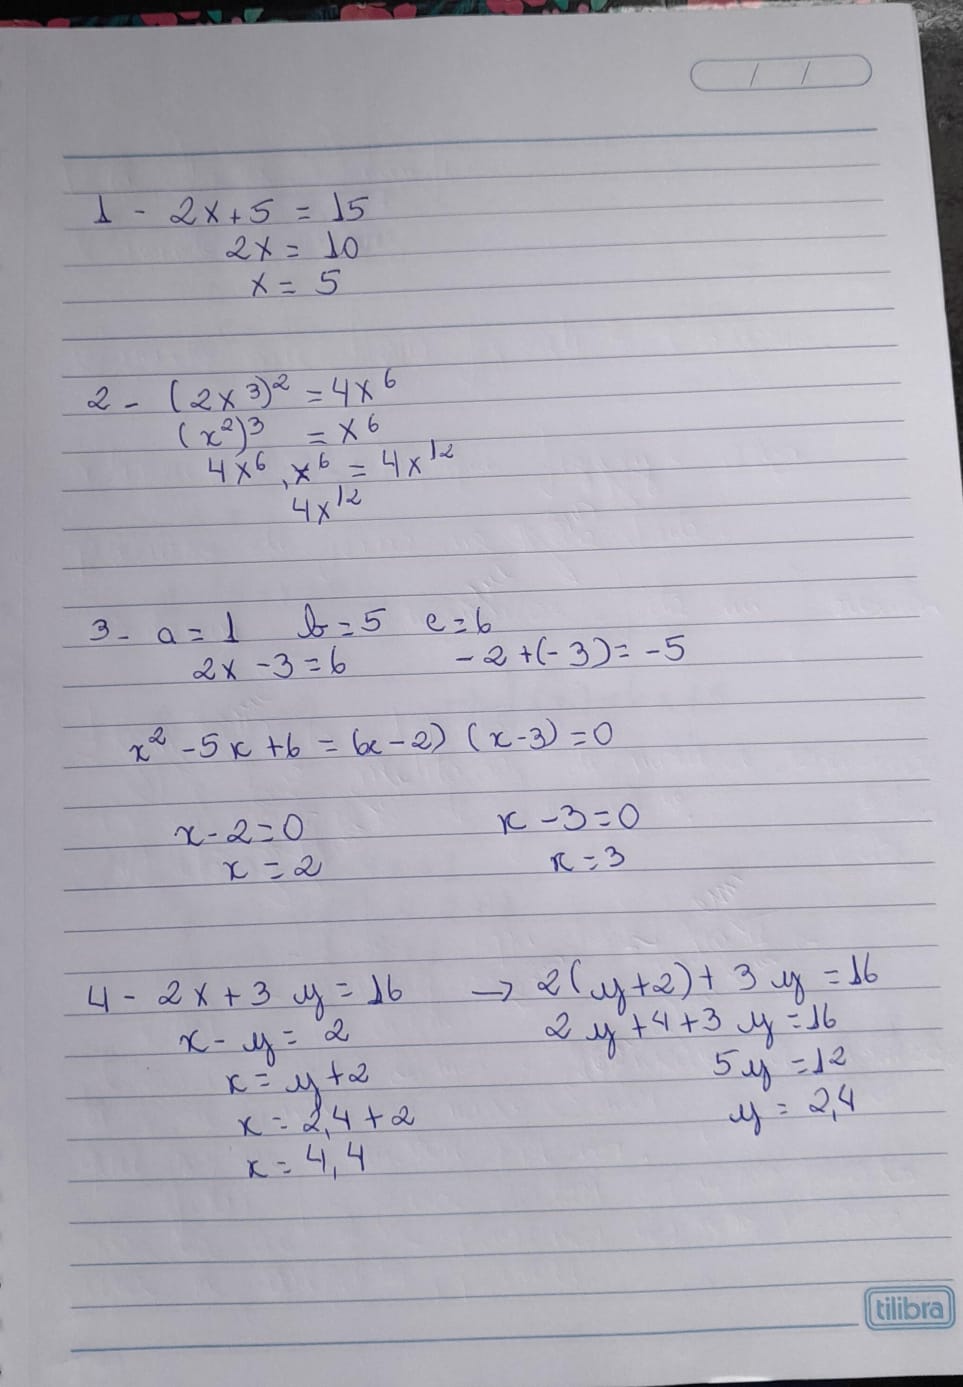 / /
1 - 2x+5 = 15
2x = 10
x = 5
2 - (2x3)² = 4x⁶
(x²)³ = x⁶
4x⁶ . x⁶ = 4x¹²
4x¹²
3 - a = 1 b = 5 c = 6
2x - 3 = 6 -2+(-3) = -5
x² - 5x + 6 = (x-2) (x-3) = 0
x - 2 = 0 x - 3 = 0
x = 2 x = 3
4 - 2x + 3y = 16 → 2(y+2) + 3y = 16
x - y = 2 2y + 4 + 3y = 16
x = y + 2 5y = 12
x = 2,4 + 2 y = 2,4
x = 4,4
tilibra